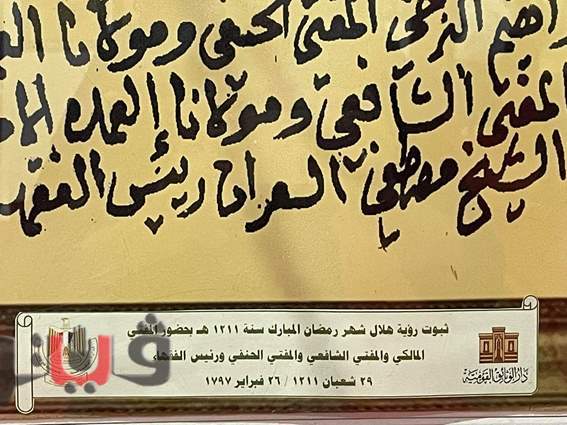 اهيم الحنفي ومولانا
المفتي الشافعي ومولانا العمده
الشيخ مصطفى رئيس الفقها
ثبوت رؤية هلال شهر رمضان المبارك سنة ١٢١١ هـ بحضور المفتي
المالكي والمفتي الشافعي والمفتي الحنفي ورئيس الفقهاء
٢٩ شعبان ١٢١١ / ٢٦ فبراير ١٧٩٧
دار الوثائق القومية